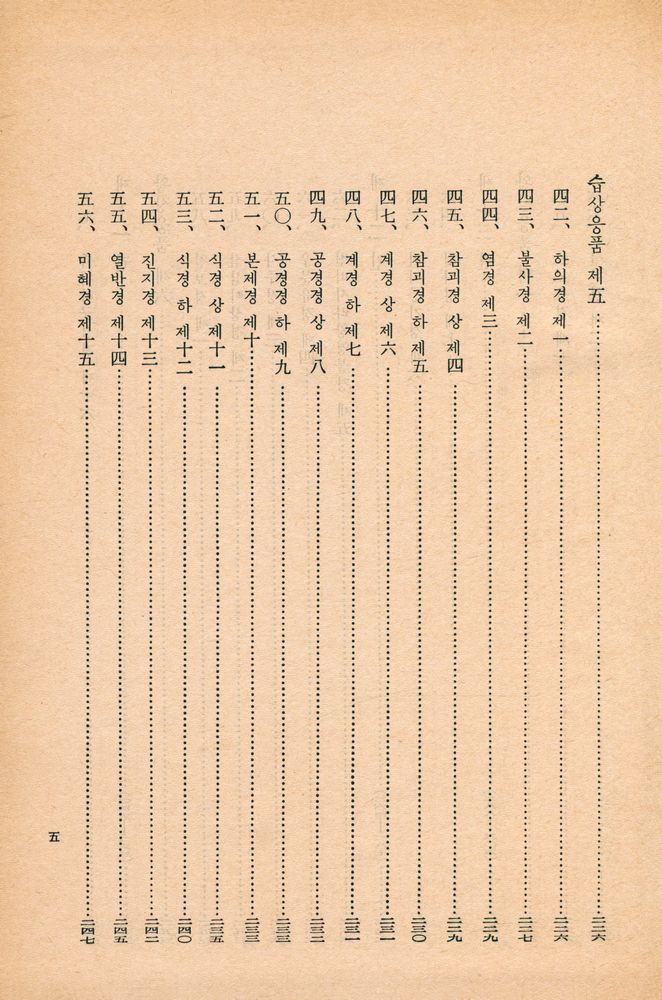 습상응품 제五……二二六
四二、 하의경 제一……二二六
四三、 불사경 제二……二二七
四四、 염경 제三……二二九
四五、 참괴경 상 제四……二二九
四六、 참괴경 하 제五……二三〇
四七、 계경 상 제六……二三一
四八、 계경 하 제七……二三一
四九、 공경경 상 제八……二三二
五〇、 공경경 하 제九……二三三
五一、 본제경 제十……二三三
五二、 식경 상 제十一……二三五
五三、 식경 하 제十二……二四〇
五四、 진지경 제十三……二四二
五五、 열반경 제十四……二四五
五六、 미혜경 제十五……二四七
五